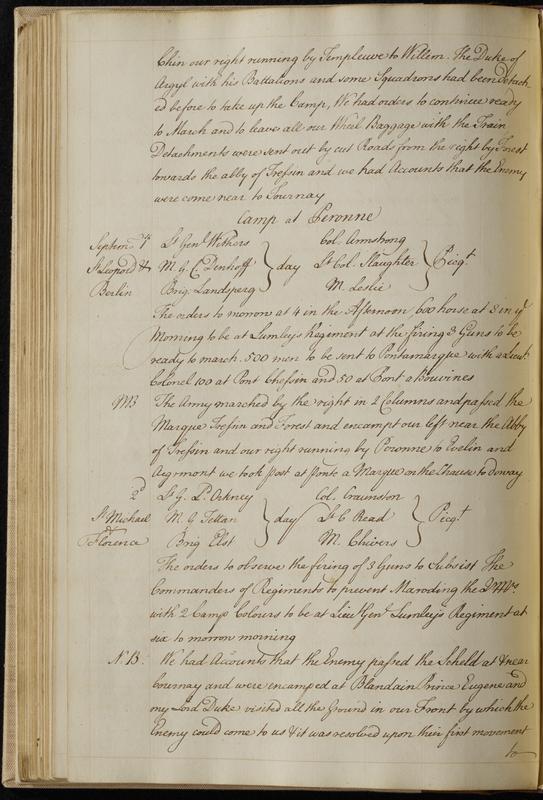 Chin our right running by Templeuve to Willem. The Duke of
Argyl with his Battalions and some Squadrons had been Detach
ed before to take up the Camp, We had orders to continue ready
to March and to leave all our Wheel Baggage with the Train
Detachments were sent out by cut Roads from the right by Forest
towards the abby of Tressin and we had Accounts that the Enemy
were come near to Tournay
Camp at Peronne
Septem. 1st Lt Genl Withers Col. Armstrong
St Leopold & M. G. C. Denhoff day Lt Col. Slaughter Picqt
Berlin Brig. Landsperg M. Leslie
The orders to morrow at 4 in the Afternoon, 600 horse at 8 in ye
Morning to be at Lumley's Regiment at the firing 3 Guns to be
ready to march. 500 men to be sent to Pontamarque with a Lieut.
Colonel 100 at Pont Chessin and 50 at Pont a Bouvines
NB The Army marched by the right in 2 Columns and passed the
Marque Tressin and Forest and encampt our left near the Abby
of Tressin and our right running by Peronne to Evelin and
Aigrmont we took post at ponte a Marque on the Chause to doway
2d Lt G. Ld Orkney Col. Cranston
St Michael M. G Tettau day Lt C Read Picqt
& Florence Brig Elst M. Chivers
The orders to observe the firing of 3 Guns to Subsist The
Commanders of Regiments to prevent Maroding the Q M Mrs.
with 2 Camp Colours to be at Lieu Genl. Lumley's Regiment at
six to morrow morning
N.B. We had Accounts that the Enemy passed the Scheld at & near
Tournay and were encamped at Blandain Prince Eugene and
my Lord Duke visited all the Ground in our Front by which the
Enemy could come to us & it was resolved upon their first movement
to